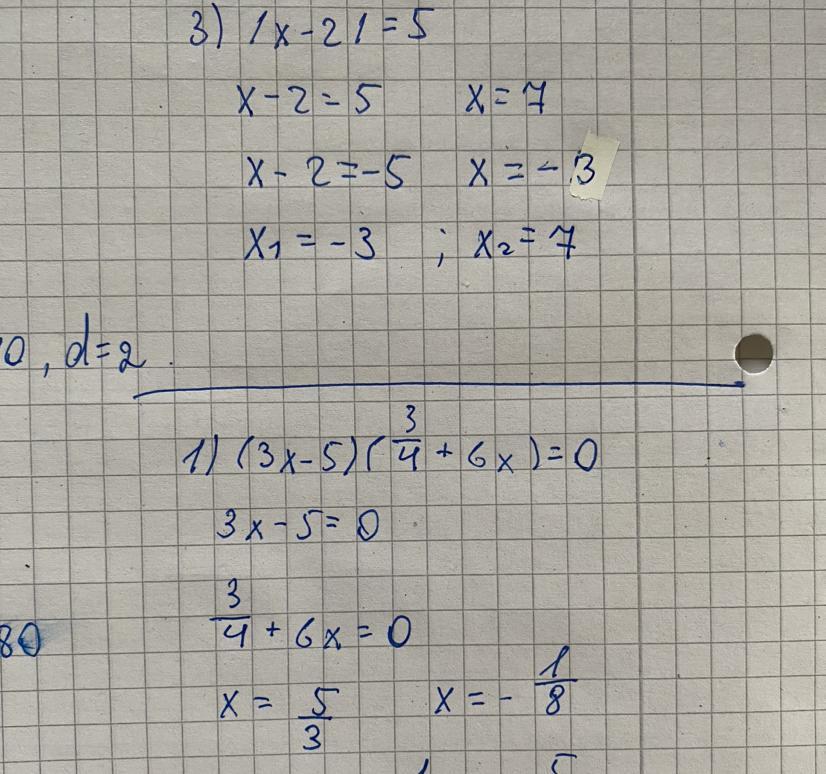 3) |x-2|=5
x-2=5 x=7
x-2=-5 x=-3
x₁=-3 ; x₂=7
0, d=2
1) (3x-5)(3/4+6x)=0
3x-5=0
3/4+6x=0
80
x=5/3 x=-1/8